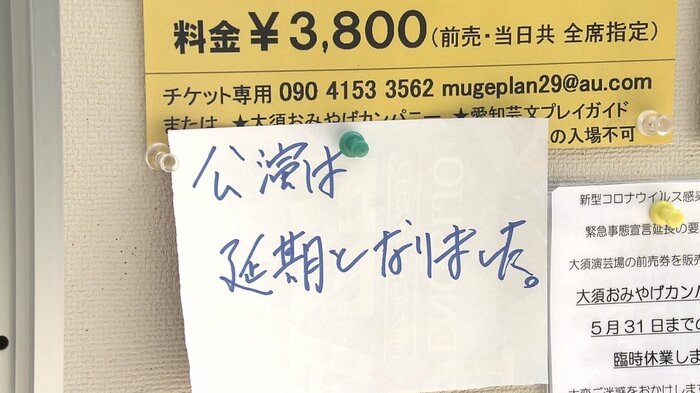 料金￥3,800(前売・当日共 全席指定)
チケット専用 090 4153 3562 mugeplan29@au.com
または ★大須おみやげカンパニー ★愛知芸文プレイガイド
の入場不可
公演は
延期となりました。
新型コロナウイルス感染
緊急事態宣言延長の要
大須演芸場の前売券を販売
大須おみやげカンパ
5月31日までの
臨時休業しま
大変ご迷惑をおかけします